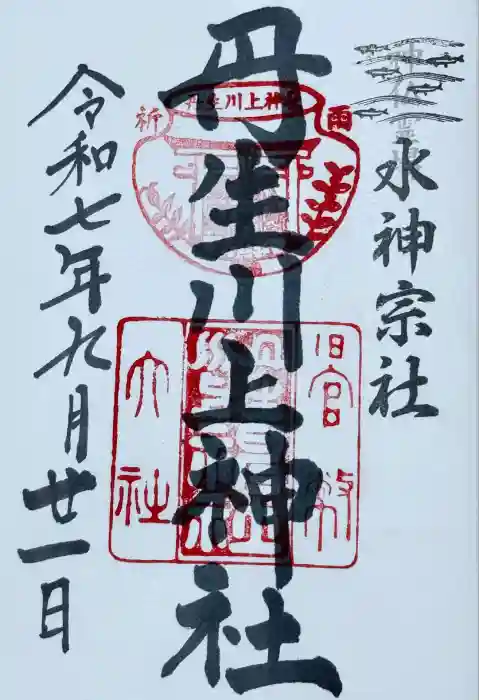 水神宗社
丹生川上神社
令和七年九月廿一日
丹生川上神社
祈
雨
旧官幣
大社